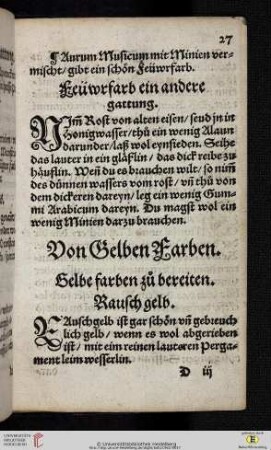 27
¶ Aurum Musicum mit Minien ver-
mischt/gibt ein schön Feüwrfarb.
Feüwrfarb ein andere
gattung.
NIm̃ Rost von alten eisen/seud jn in
Honigwasser/thů ein wenig Alaun
darunder/laß wol eynsieden. Seihe
das lauter in ein gläßlin/das dick reibe zu
häufflin. Weñ du es brauchen wilt/so nim̃
des dünnen wassers vom rost/vñ thů von
dem dickeren dareyn/leg ein wenig Gum-
mi Arabicum dareyn. Du magst wol ein
wenig Minien darzu brauchen.
Von Gelben Farben.
Gelbe farben zů bereiten.
Rausch gelb.
RAuschgelb ist gar schön vñ gebreuch
lich gelb/wenn es wol abgerieben
ist/mit eim reinen lauteren Perga-
ment leim wesserlin.
D iij
© Universitätsbibliothek Heidelberg